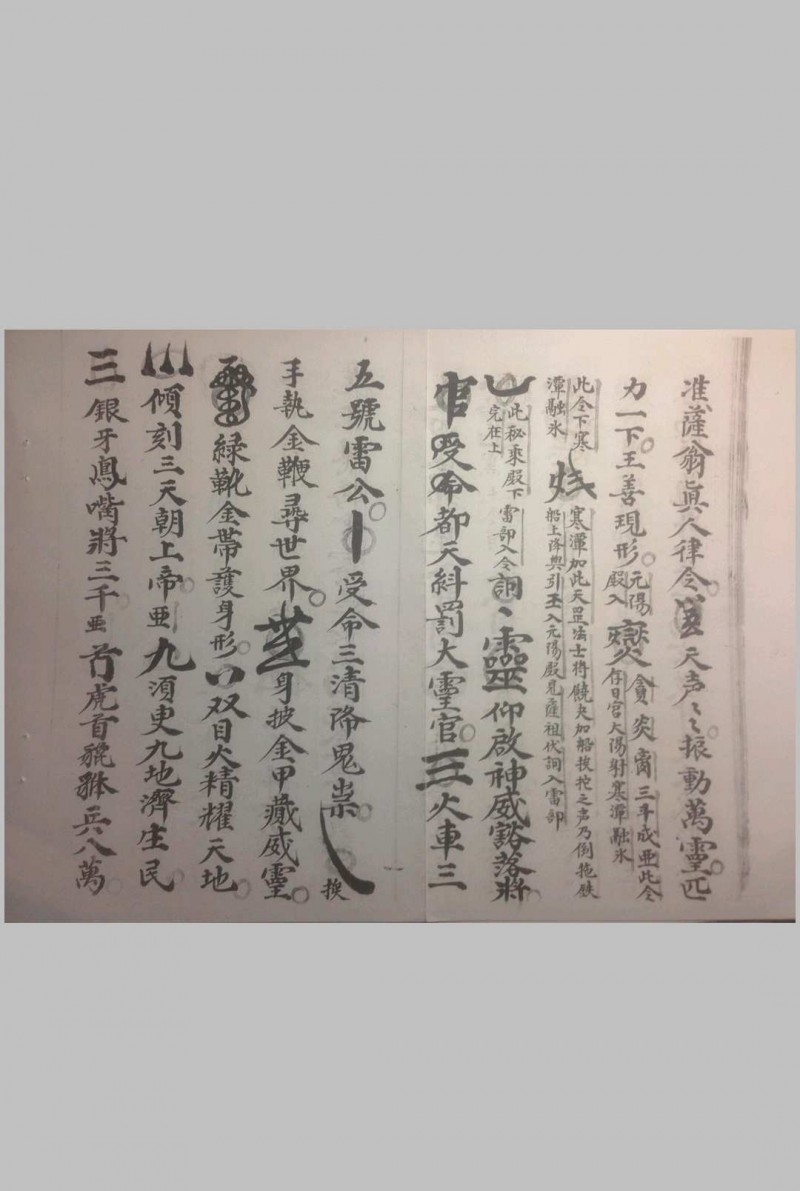 准薩翁眞人律令天声々振動萬靈匹
力一下王善現形元陽殿入變存日宮大陽射寒潭融氷貪炎甯三斗成亜此令
此令下寒潭融氷寒潭加此天罡法士将鐃夫加船拔控之声乃倒拖鉄船上洛與引王入元陽殿見薩祖伏詞入雷部
此秘乘殿下完在上雷部入令詞〻靈仰啟神威豁落将
受命都天糾罰大靈官三火車三
五號雷公受命三清降鬼祟挨
手執金鞭尋世界身披金甲藏威靈
緑靴金帶護身形双目火精耀天地
傾刻三天朝上帝亜九須更九地濟生民
三銀牙鳳嘴将三千亜虎首貔貅兵八萬